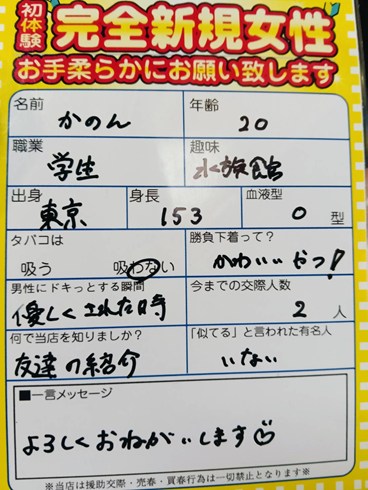 初体験
完全新規女性
お手柔らかにお願い致します
名前
かのん
年齢
20
職業
学生
趣味
水族館
出身
東京
身長
153
血液型
O 型
タバコは
吸う 吸わない
勝負下着って?
かわいいやつ!
男性にドキっとする瞬間
優しくされた時
今までの交際人数
2 人
何で当店を知りましたか?
友達の紹介
「似てる」と言われた有名人
いない
■一言メッセージ
よろしくおねがいします♡
※当店は援助交際・売春・買春行為は一切禁止となります※